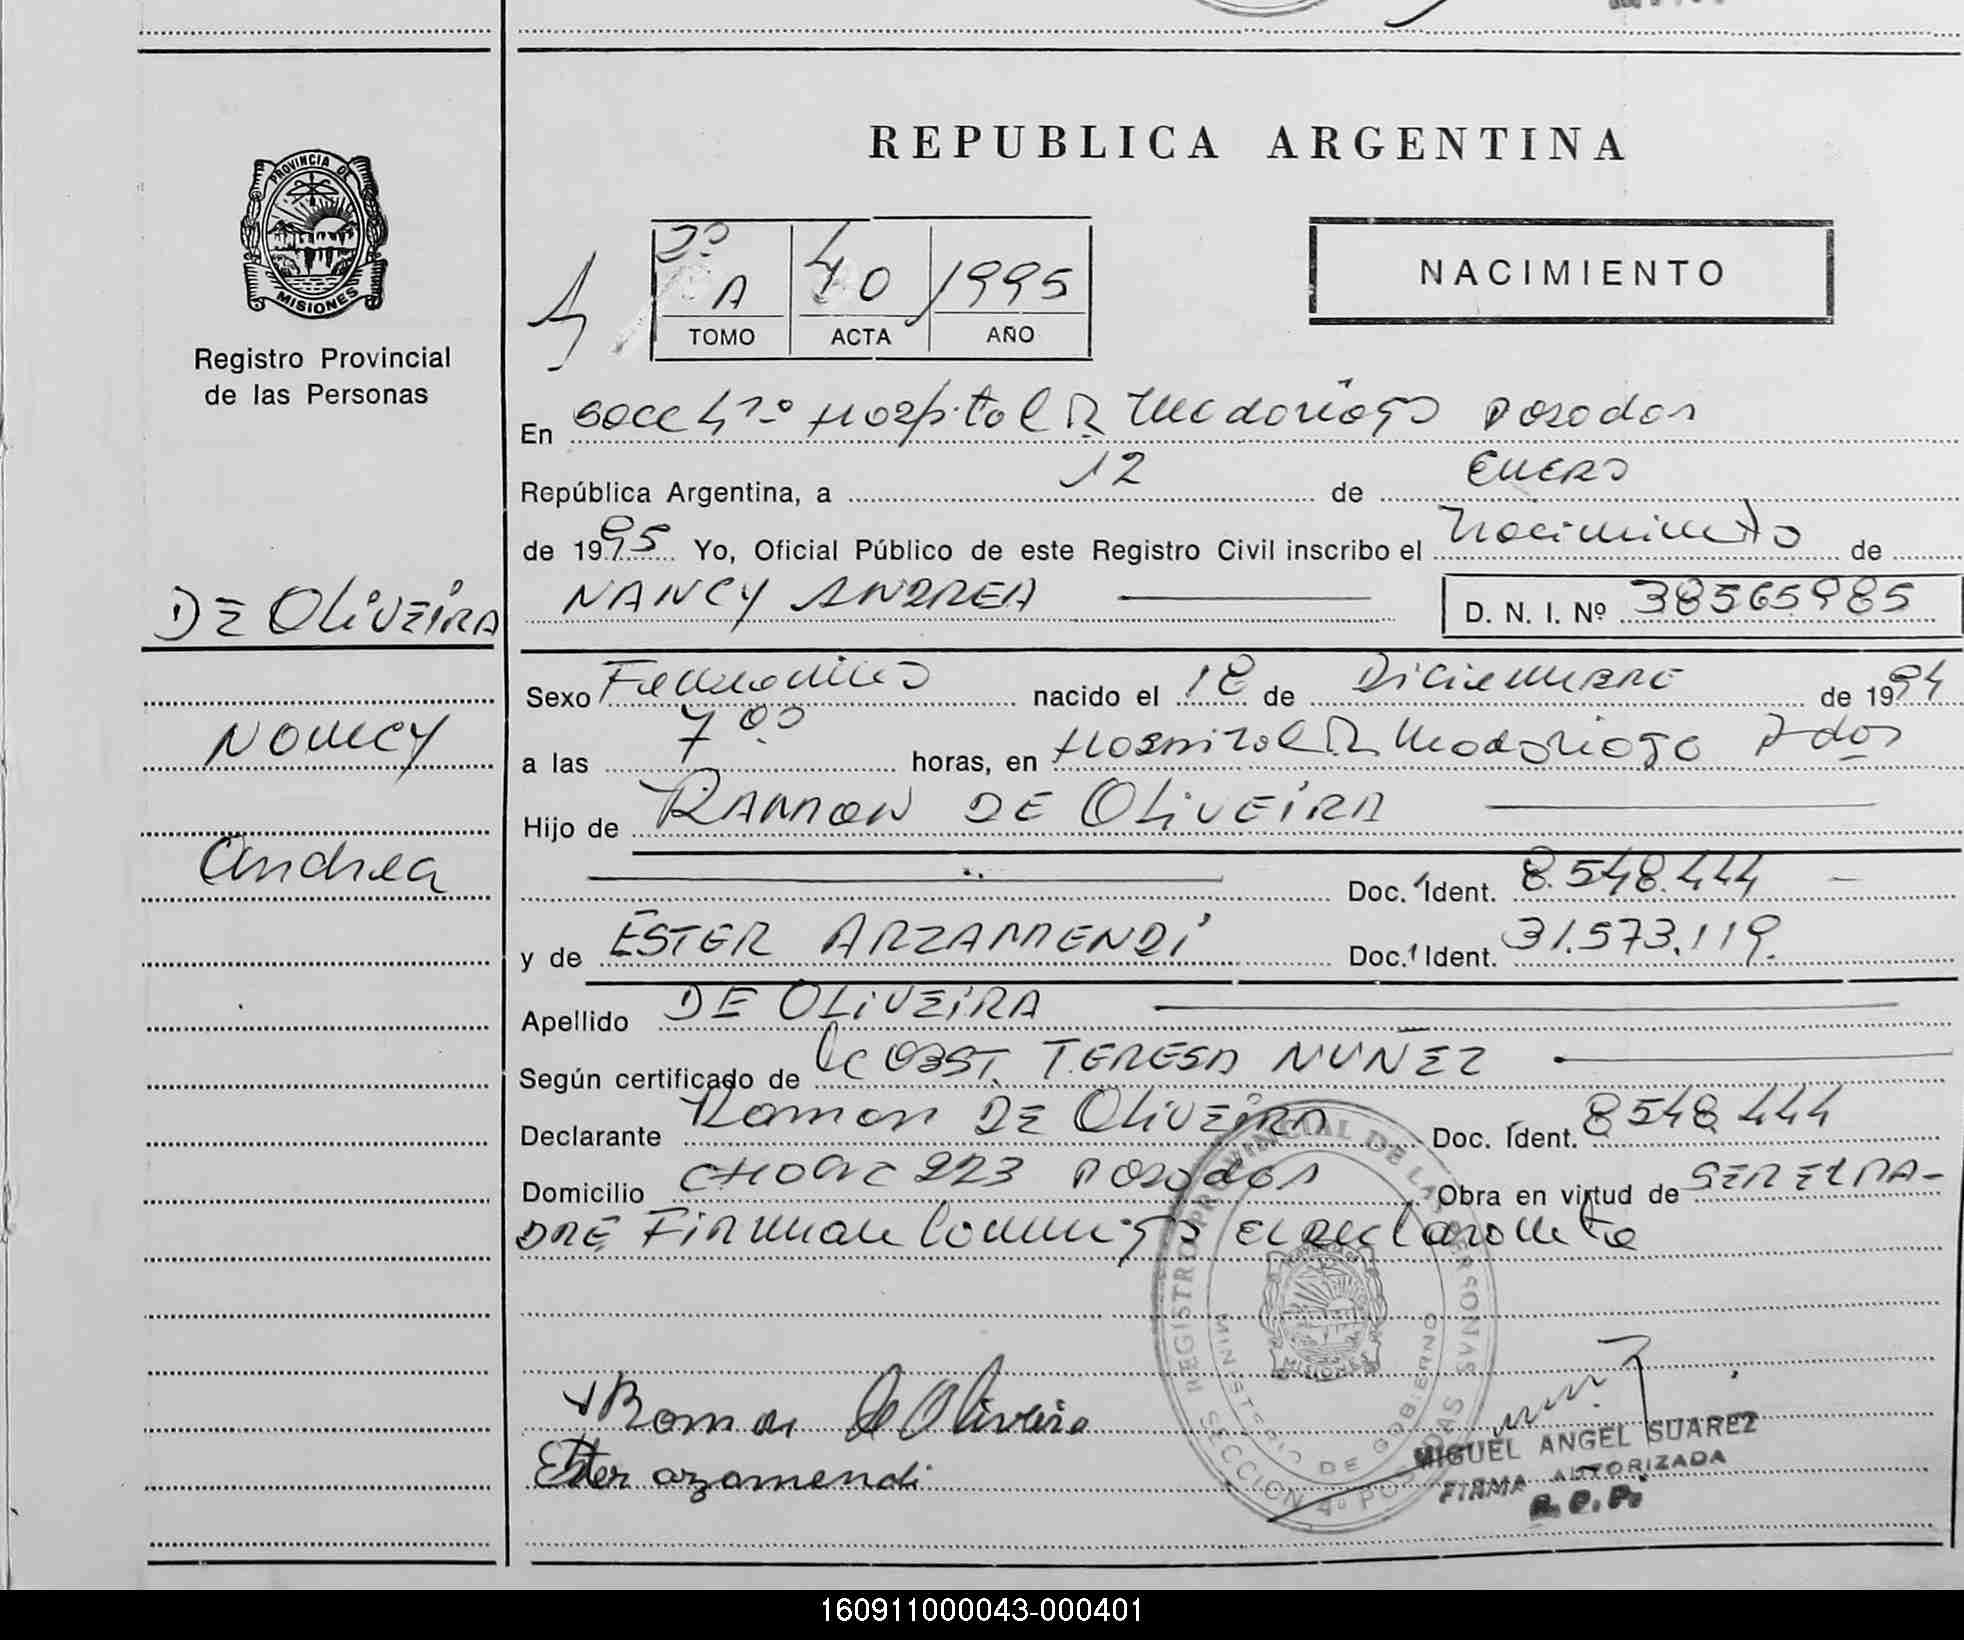 REPUBLICA ARGENTINA
PROVINCIA DE
MISIONES
Registro Provincial
de las Personas
2º
A 40 1995
TOMO ACTA AÑO
NACIMIENTO
En Secc 4ta Hospital R Madariaga Posadas
República Argentina, a 12 de Enero
de 1995 Yo, Oficial Público de este Registro Civil inscribo el Nacimiento de
DE OLIVEIRA
NANCY ANDREA D. N. I. Nº 38565985
Nancy
Andrea
Sexo Femenino nacido el 18 de Diciembre de 1994
a las 7 00 horas, en Hospital R Madariaga Pdas
Hijo de RAMON DE OLIVEIRA
Doc. Ident. 8.548.444
y de ESTER ARZAMENDI Doc. Ident. 31.573.119.
Apellido DE OLIVEIRA
Según certificado de OBST. TERESA NUÑEZ
Declarante Ramon DE OLIVEIRA Doc. Ident. 8548444
Domicilio 223 Posadas Obra en virtud de SER EL PA-
DRE Firman Conmigo el declarante
REGISTRO PROVINCIAL DE LAS PERSONAS
MINISTERIO DE GOBIERNO
MISIONES
SECCION 4º POSADAS
Ramon de Oliveira
Ester azamendi
MIGUEL ANGEL SUAREZ
FIRMA AUTORIZADA
R. P. P.
160911000043-000401